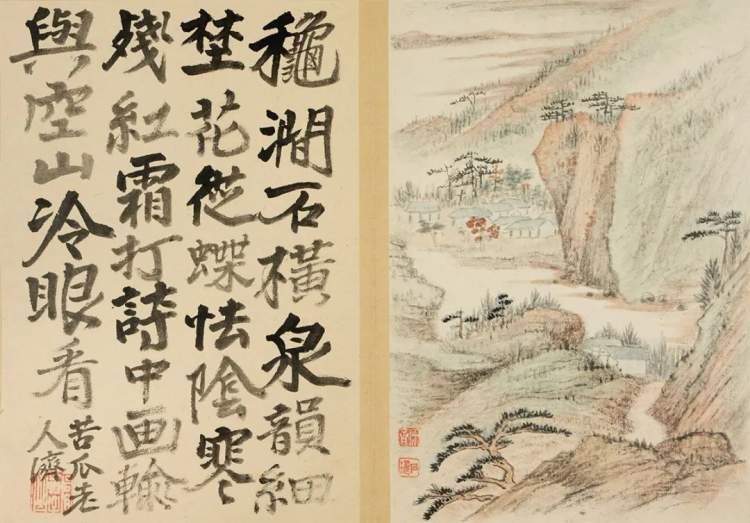 龝澗石橫泉韻細
埜花從蝶怯陰寒
殘紅霜打詩中画輸
與空山冷眼看
苦瓜老
人濟